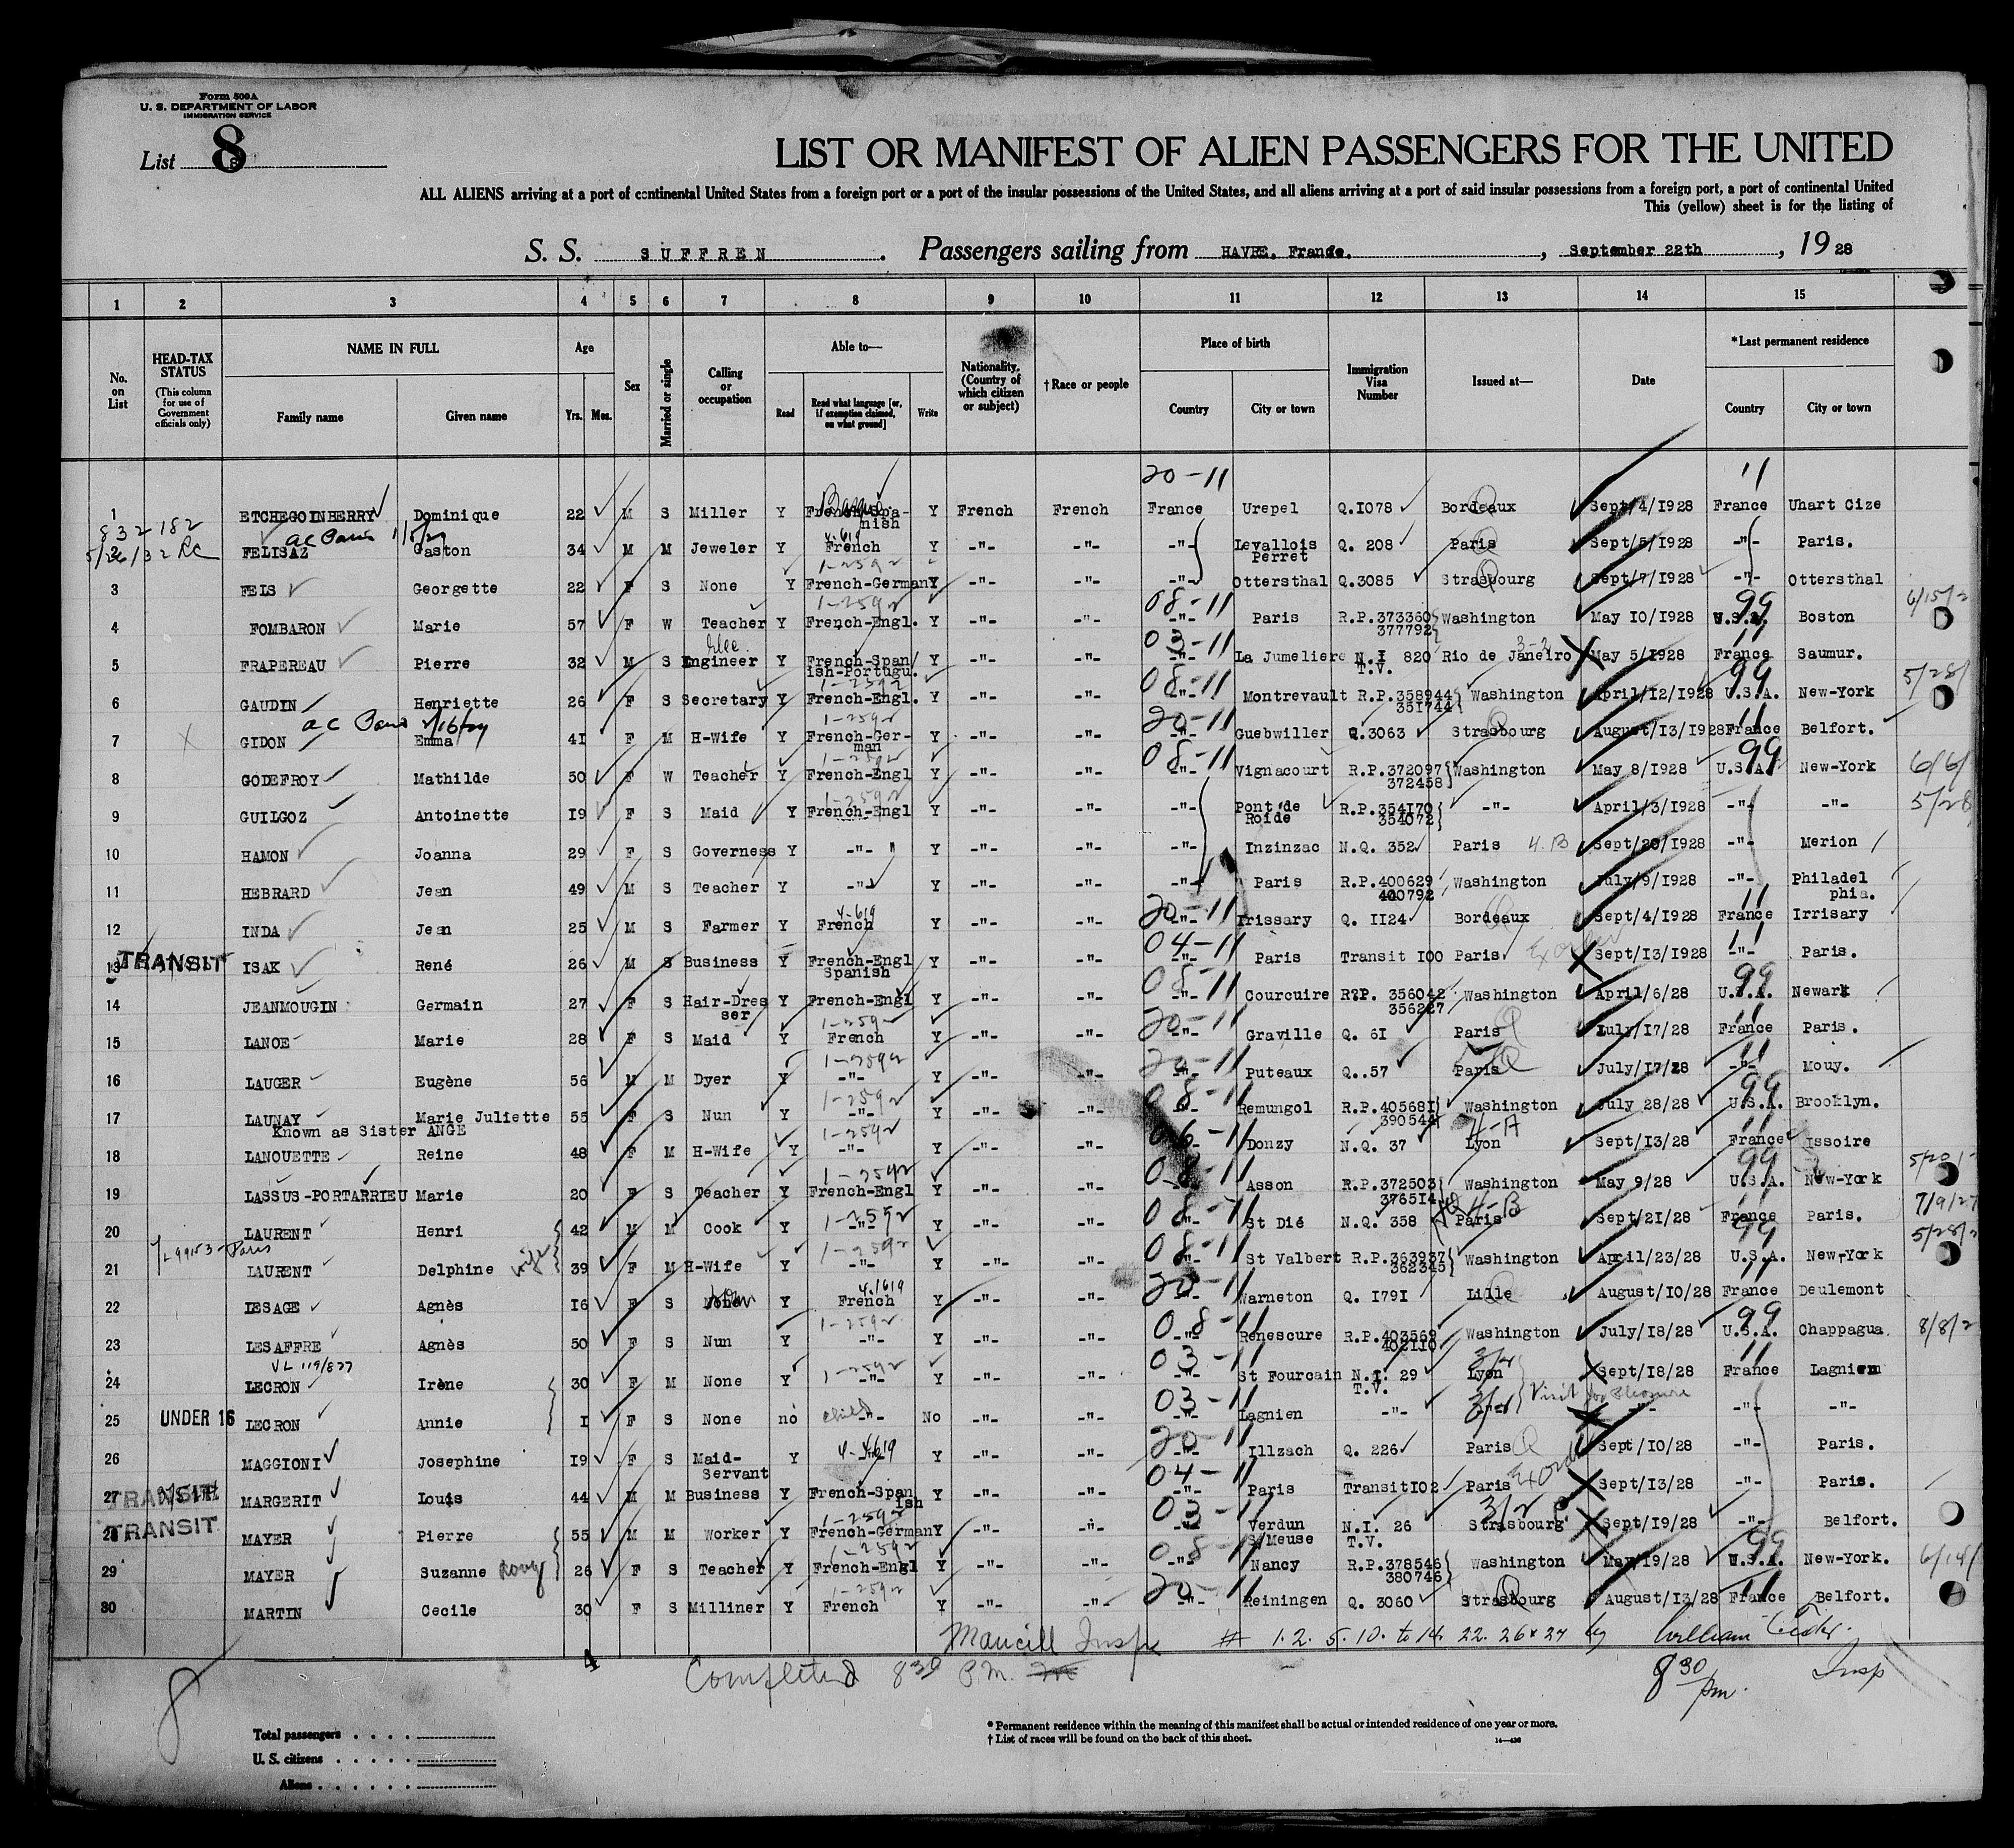 Form 500A
U. S. DEPARTMENT OF LABOR
IMMIGRATION SERVICE
List 8
LIST OR MANIFEST OF ALIEN PASSENGERS FOR THE UNITED
ALL ALIENS arriving at a port of continental United States from a foreign port or a port of the insular possessions of the United States, and all aliens arriving at a port of said insular possessions from a foreign port, a port of continental United
This (yellow) sheet is for the listing of
S. S. SUFFREN. Passengers sailing from HAVRE, France., September 22th, 1928
1 2 3 4 5 6 7 8 9 10 11 12 13 14 15
No. on List
HEAD-TAX STATUS (This column for use of Government officials only)
NAME IN FULL Family name Given name
Age Yrs. Mos.
Sex
Married or single
Calling or occupation
Able to— Read Read what language [or, if exemption claimed, on what ground] Write
Nationality. (Country of which citizen or subject)
† Race or people
Place of birth Country City or town
Immigration Visa Number
Issued at—
Date
*Last permanent residence Country City or town
20-11 11
1 ETCHEGOINBERRY Dominique 22 M S Miller Y French-Spanish Basque Y French French France Urepel Q.I078 Bordeaux Sept/4/I928 France Uhart Cize
832182
5/26/32 ac Paris 1/5/29
FELISAZ Gaston 34 M M Jeweler Y French Y -"- -"- -"- Levallois Perret Q. 208 Paris Sept/5/I928 -"- Paris.
3 FEIS Georgette 22 F S None Y French-German Y -"- -"- -"- Ottersthal Q.3085 Strasbourg Sept/7/I928 -"- Ottersthal
4 FOMBARON Marie 57 F W Teacher Y French-Engl. Y -"- -"- 08-11 -"- Paris R.P.373360 377792 Washington May I0/I928 99 U.S.A. Boston
5 FRAPEREAU Pierre 32 M S Elec Engineer Y French-Spanish-Portugu. Y -"- -"- 03-11 -"- La Jumeliere N.I 820 T.V. Rio de Janeiro 3-2 May 5/I928 11 France Saumur.
6 GAUDIN Henriette 26 F S Secretary Y French-Engl. Y -"- -"- 08-11 -"- Montrevault R.P.358944 351744 Washington April/I2/I928 99 U.S.A. New-York 5/28/
ac Paris
7 GIDON Emma 4I F M H-Wife Y French-German Y -"- -"- 20-11 -"- Guebwiller Q.3063 Strasbourg August/I3/I928 11 France Belfort.
8 GODEFROY Mathilde 50 F W Teacher Y French-Engl Y -"- -"- 08-11 -"- Vignacourt R.P.372097 372458 Washington May 8/I928 99 U.S.A. New-York 6/6/
9 GUILGOZ Antoinette I9 F S Maid Y French-Engl Y -"- -"- -"- Pont de Roide R.P.354I70 354072 -"- April/3/I928 -"- -"- 5/28
10 HAMON Joanna 29 F S Governess Y -"- Y -"- -"- -"- Inzinzac N.Q. 352 Paris 4.B Sept/20/I928 -"- Merion
11 HEBRARD Jean 49 M S Teacher Y -"- Y -"- -"- -"- Paris R.P.400629 400792 Washington July/9/I928 -"- Philadelphia.
12 INDA Jean 25 M S Farmer Y French Y -"- -"- 20-11 -"- Irissary Q. II24 Bordeaux Sept/4/I928 11 France Irrisary
13 TRANSIT ISAK René 26 M S Business Y French-Engl Spanish Y -"- -"- 04-11 -"- Paris Transit I00 Paris Sept/I3/I928 11 -"- Paris.
14 JEANMOUGIN Germain 27 F S Hair-Dresser Y French-Engl Y -"- -"- 08-11 -"- Courcuire R?P. 356042 356227 Washington April/6/28 99 U.S.A. Newark
15 LANOE Marie 28 F S Maid Y French Y -"- -"- 20-11 -"- Graville Q. 6I Paris July/I7/28 11 France Paris.
16 LAUGER Eugène 56 M M Dyer Y -"- Y -"- -"- 20-11 -"- Puteaux Q..57 Paris July/I7/28 11 -"- Mouy.
17 LAUNAY Marie Juliette 55 F S Nun Y -"- Y -"- -"- 08-11 -"- Remungol R.P.40568I 390544 Washington July 28/28 99 U.S.A. Brooklyn.
Known as Sister ANGE
18 LANOUETTE Reine 48 F M H-Wife Y -"- Y -"- -"- 06-11 Donzy N.Q. 37 4-A Lyon Sept/I3/28 11 France Issoire
19 LASSUS-PORTARRIEU Marie 20 F S Teacher Y French-Engl Y -"- -"- 08-11 -"- Asson R.P.372503 3765I4 Washington May 9/28 99 U.S.A. New-York
20 LAURENT Henri 42 M M Cook Y -"- Y -"- -"- 08-11 -"- St Dié N.Q. 358 4-B Paris Sept/2I/28 11 France Paris. 7/9/27
21 LAURENT Delphine wife 39 F M H-Wife Y -"- Y -"- -"- 08-11 -"- St Valbert R.P.363937 362345 Washington April/23/28 99 U.S.A. New-York
22 LESAGE Agnès I6 F S None Y French Y -"- -"- 20-11 -"- Warneton Q. I79I Lille August/I0/28 11 France Deulemont
23 LESAFFRE Agnès 50 F S Nun Y -"- Y -"- -"- 08-11 -"- Renescure R.P.403569 402II0 Washington July/I8/28 99 U.S.A. Chappagua 8/8/2
VL 119/877
24 LECRON Irène 30 F M None Y -"- Y -"- -"- 03-11 -"- St Fourcain N.I. 29 T.V. 3/2 Lyon Sept/I8/28 11 France Lagniem
Visit for Pleasure
25 UNDER 16 LECRON Annie I F S None no child -"- No -"- -"- 03-11 -"- Lagnien -"- 3/2 -"- -"- -"- -"-
26 MAGGIONI Josephine I9 F S Maid-Servant Y Y -"- -"- 20-11 -"- Illzach Q. 226 Paris Sept/I0/28 -"- Paris.
27 TRANSIT MARGERIT Louis 44 M M Business Y French-Spanish Y -"- -"- 04-11 -"- Paris TransitI02 Paris Sept/I3/28 -"- Paris.
28 TRANSIT MAYER Pierre 55 M M Worker Y French-German Y -"- -"- 03-11 -"- Verdun S/Meuse N.I. 26 T.V. 3/2 Strasbourg Sept/I9/28 -"- Belfort.
29 MAYER Suzanne 26 F S Teacher Y French-Engl Y -"- -"- 08-11 -"- Nancy R.P.378546 380746 Washington May/I9/28 99 U.S.A. New-York. 6/14/
30 MARTIN Cecile 30 F S Milliner Y French Y -"- -"- 20-11 -"- Reiningen Q. 3060 Strasbourg August/I3/28 11 France Belfort.
Insp # 1. 2. 5. 10. to 14. 22. 26 & 27 by William Insp
Completed 8 30 P.M. 8 30 pm.
8
Total passengers . . . .
U. S. citizens . . . . .
Aliens . . . . . .
* Permanent residence within the meaning of this manifest shall be actual or intended residence of one year or more.
† List of races will be found on the back of this sheet.